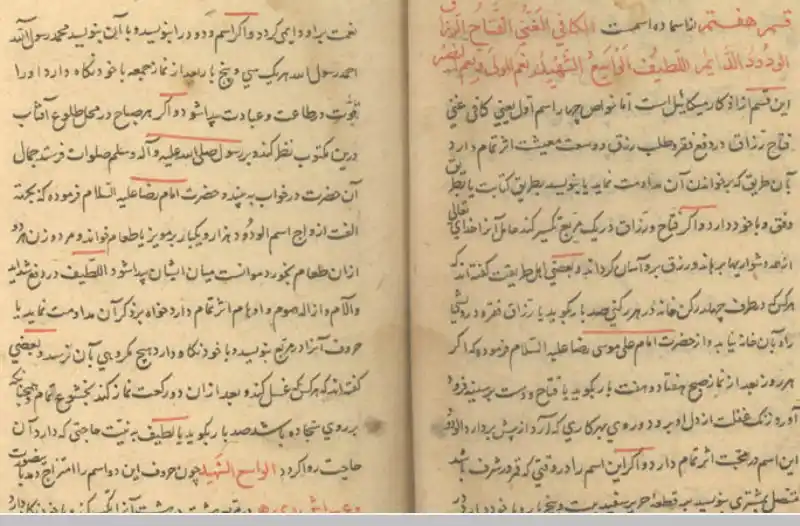 قسم هفتم از اسماء ده اسمست الکافی الغنی الفتاح الرزاق
الودود الدائم اللطیف الواسع الشهید نعم المولی و نعم النصیر
این قسم از اذکار میکائیل است اما خواص چهار اسم اول یعنی کافی غنی
فتاح رزاق در دفع فقر و طلب رزق و وسعت معیشت اثر تمام دارد
بآن طریق که بر خواندن آن مداومت نماید یا بنویسد بطریق کتابت یا بطریق
وفق و با خود دارد و اگر فتاح و رزاق در یک مربع تکسیر کند حامل آنرا خدای تعالی
از همه دشواریها برهاند و رزق برو آسان کرداند و بعضی اهل طریقت گفته‌اند که
هرکس که در طرف چهار رکن خانه در هر رکنی صد بار بکوید یا رزاق فقر و درویشی
راه بآن خانه نیابد و از حضرت امام علی موسی رضا علیه السلام فرموده که اگر
هر روز بعد از نماز صبح هفتاد و هفت بار بکوید یا فتاح و دست بر سینه فرود
آورد زنک غفلت از دل او برود و روی بهر کاری که آرد از پیش بردارد الودود
این اسم در محبت اثر تمام دارد و اگر این اسم را در وقتی که قمر در شرف باشد
متصل بمشتری بنویسد بر قطعه حریر سفید بیست و پنج بار و با خود دارد در
نعمت برو دایمی کردد و اگر اسم ودود را بنویسد و با آن بنویسد محمد رسول الله
احمد رسول الله هر یک سی و پنج بار بعد از نماز جمعه با خود نکاه دارد او را
قوت در طاعت و عبادت پیدا شود و اگر هر صباح در محل طلوع آفتاب
درین مکتوب نظر کند و بر رسول صلی الله علیه و آله و سلم صلوات فرستد جمال
آن حضرت در خواب به بیند و حضرت امام رضا علیه السلام فرموده که بجهته
الفت ازواج اسم الودود هزار و یکبار بر مویز یا طعام خواند و مرد و زن هر دو
از ان طعام بخورند موانست میان ایشان پیدا شود اللطیف در دفع شداید
و آلام و ازاله هموم و اوهام اثر تمام دارد خواه بر ذکر آن مداومت نماید یا
حروف آنرا در مربع بنویسد و با خود نکاه دارد هیچ مکروهی بآن نرسد و بعضی
گفته‌اند که هرکس که غسل کند و بعد از ان دو رکعت نماز کند بخشوع تمام همچنانکه
بر روی سجاده باشد صد بار بکوید یا لطیف به نیت حاجتی که دارد آن
حاجت روا کردد الواسع الشهید چون حروف این دو اسم را امتزاج دهد